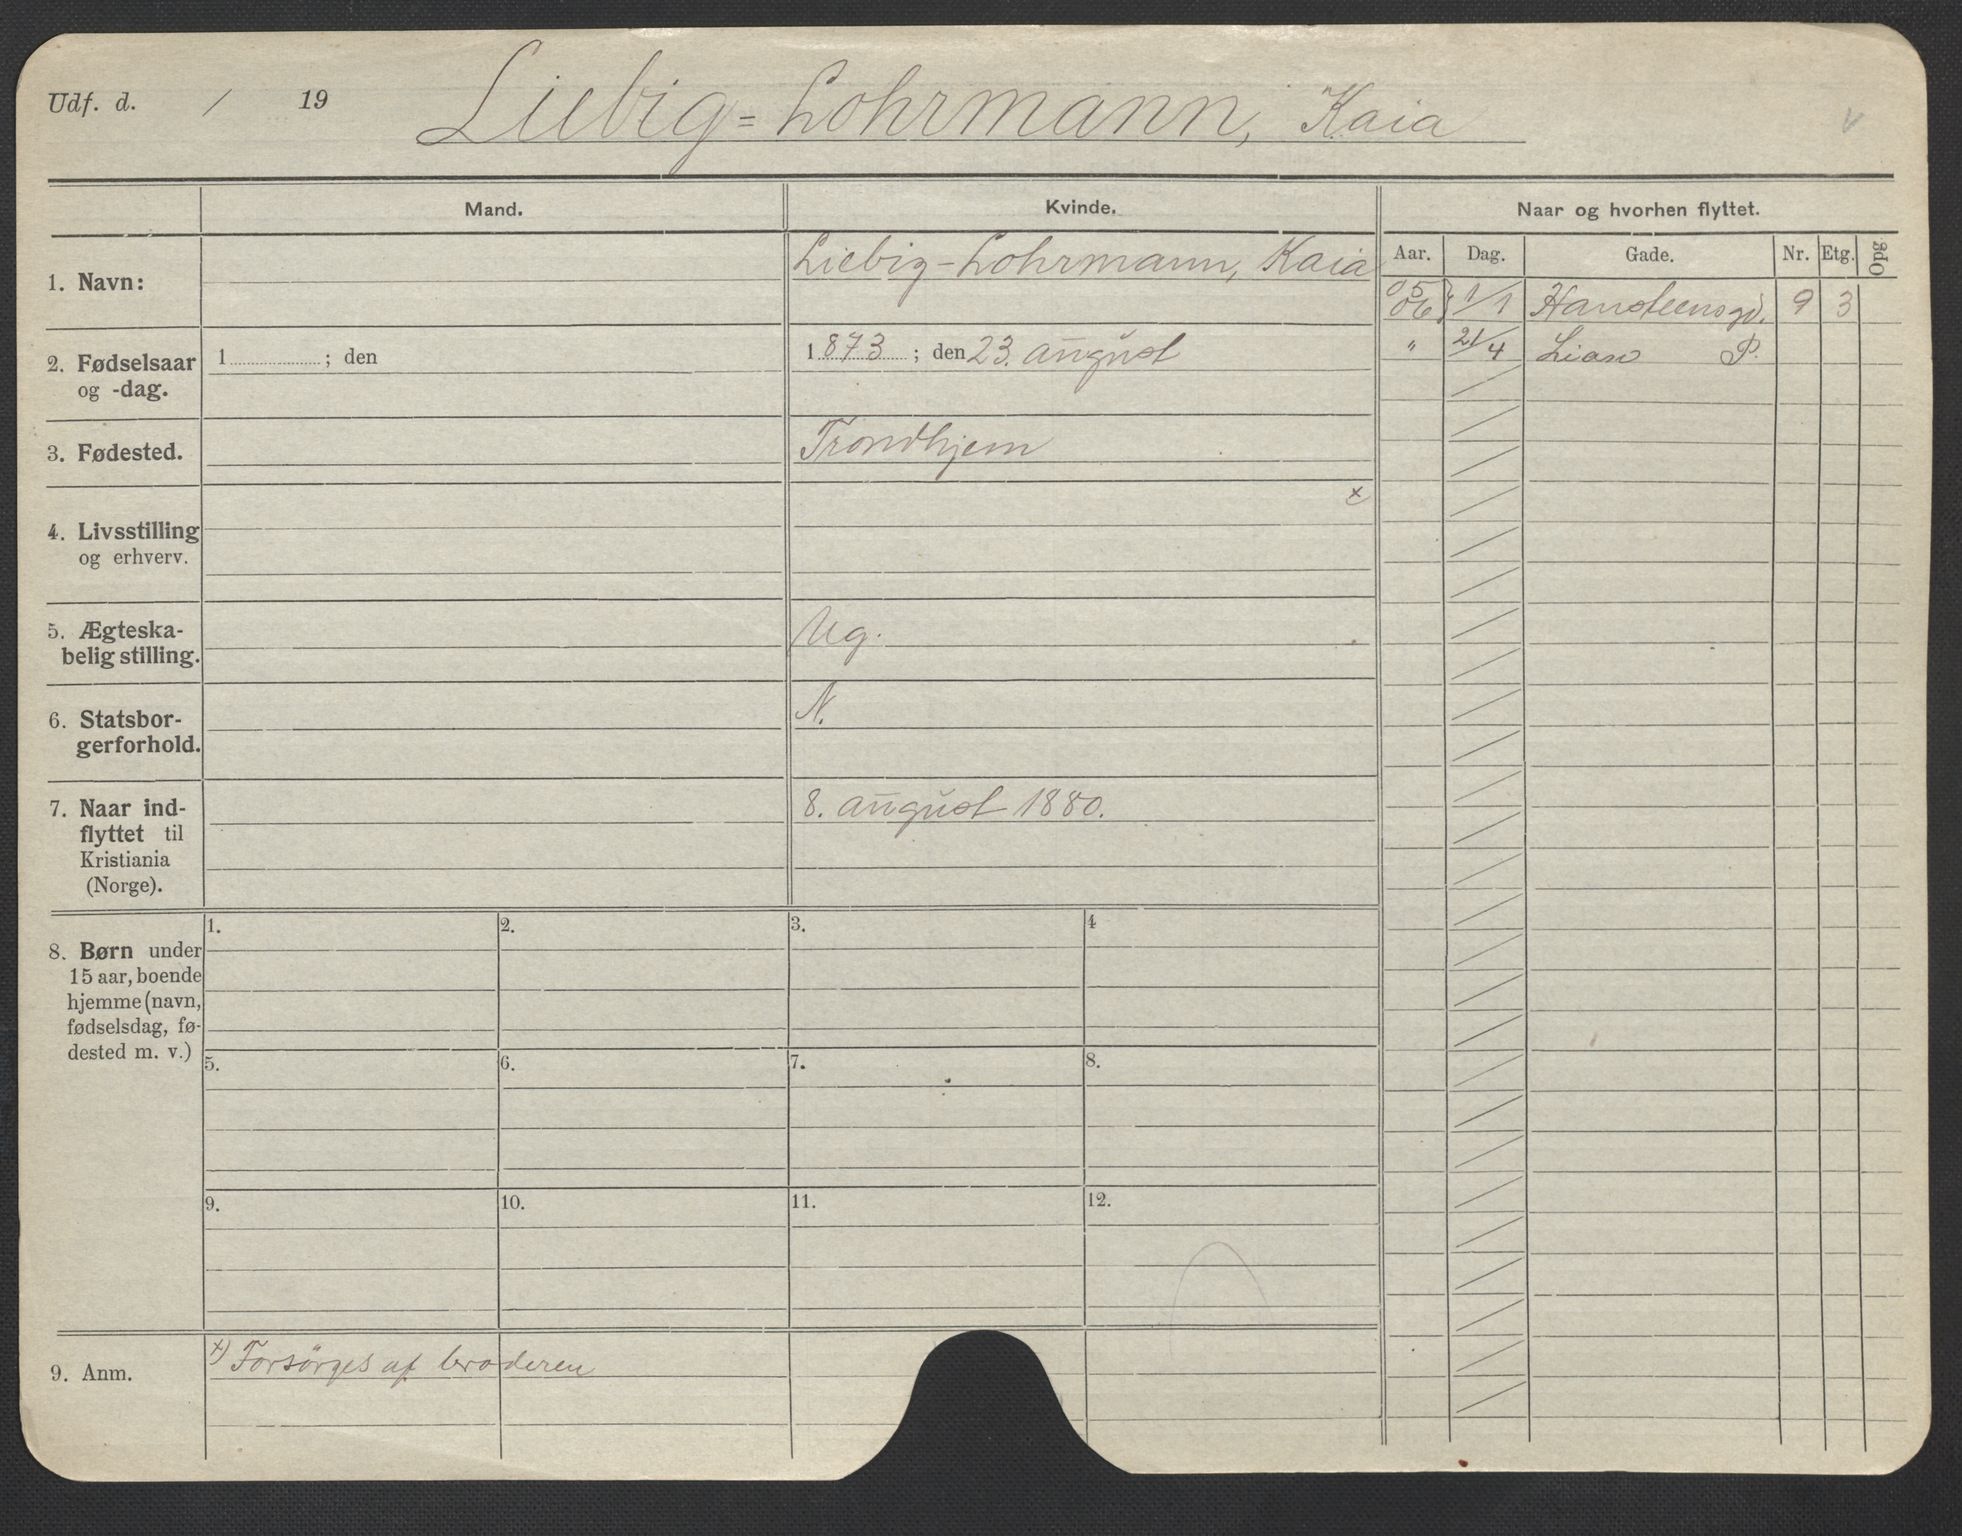 Udf. d. / 19
Liebig=Lohrmann, Kaia
Mand.
Kvinde.
Naar og hvorhen flyttet.
Aar. Dag. Gade. Nr. Etg. Opg
1. Navn:
Liebig-Lohrmann, Kaia
05
06 } 1/1 Hansteensgd. 9 3
" 21/4 Lian P.
2. Fødselsaar
og -dag.
1 ; den
1873 ; den 23. august
3. Fødested.
Trondhjem
4. Livsstilling
og erhverv.
x
5. Ægteska-
belig stilling.
Ug.
6. Statsbor-
gerforhold.
N.
7. Naar ind-
flyttet til
Kristiania
(Norge).
8. august 1880.
8. Børn under
15 aar, boende
hjemme (navn,
fødselsdag, fø-
dested m. v.)
1. 2. 3. 4
5. 6. 7. 8.
9. 10. 11. 12.
9. Anm.
x) Forsørges af broderen